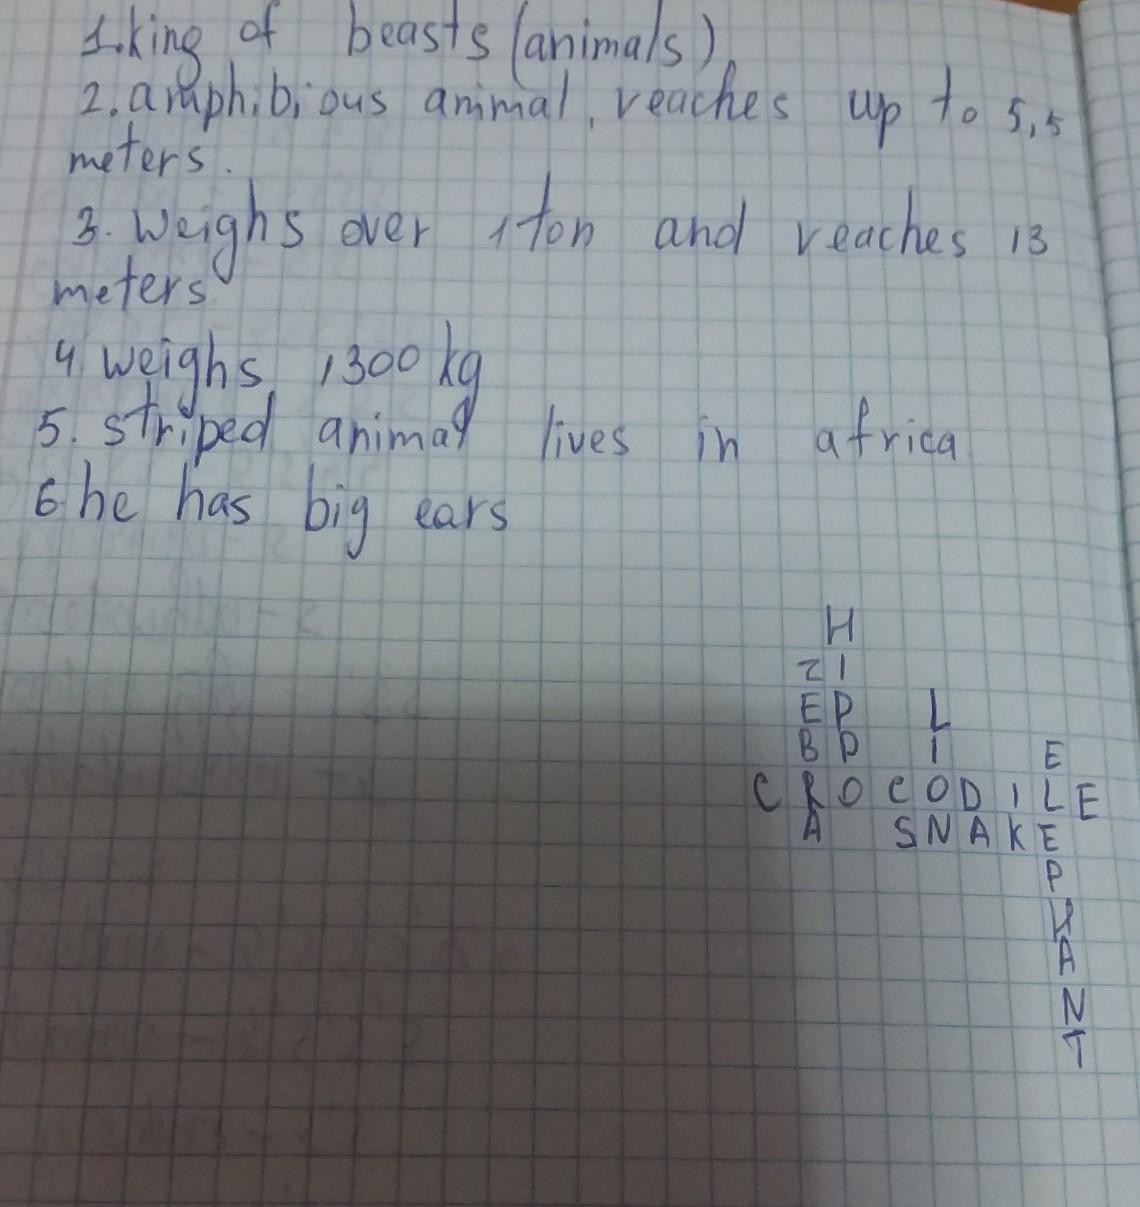 1.king of beasts (animals)
2.amphibious animal, reaches up to 5,5
meters.
3. weighs over 1ton and reaches 13
meters
4 weighs 1300 kg
5. striped animal lives in africa
6 he has big ears
H
Z I
E P L
B P I E
C R O C O D I L E
A S N A K E
P
H
A
N
T